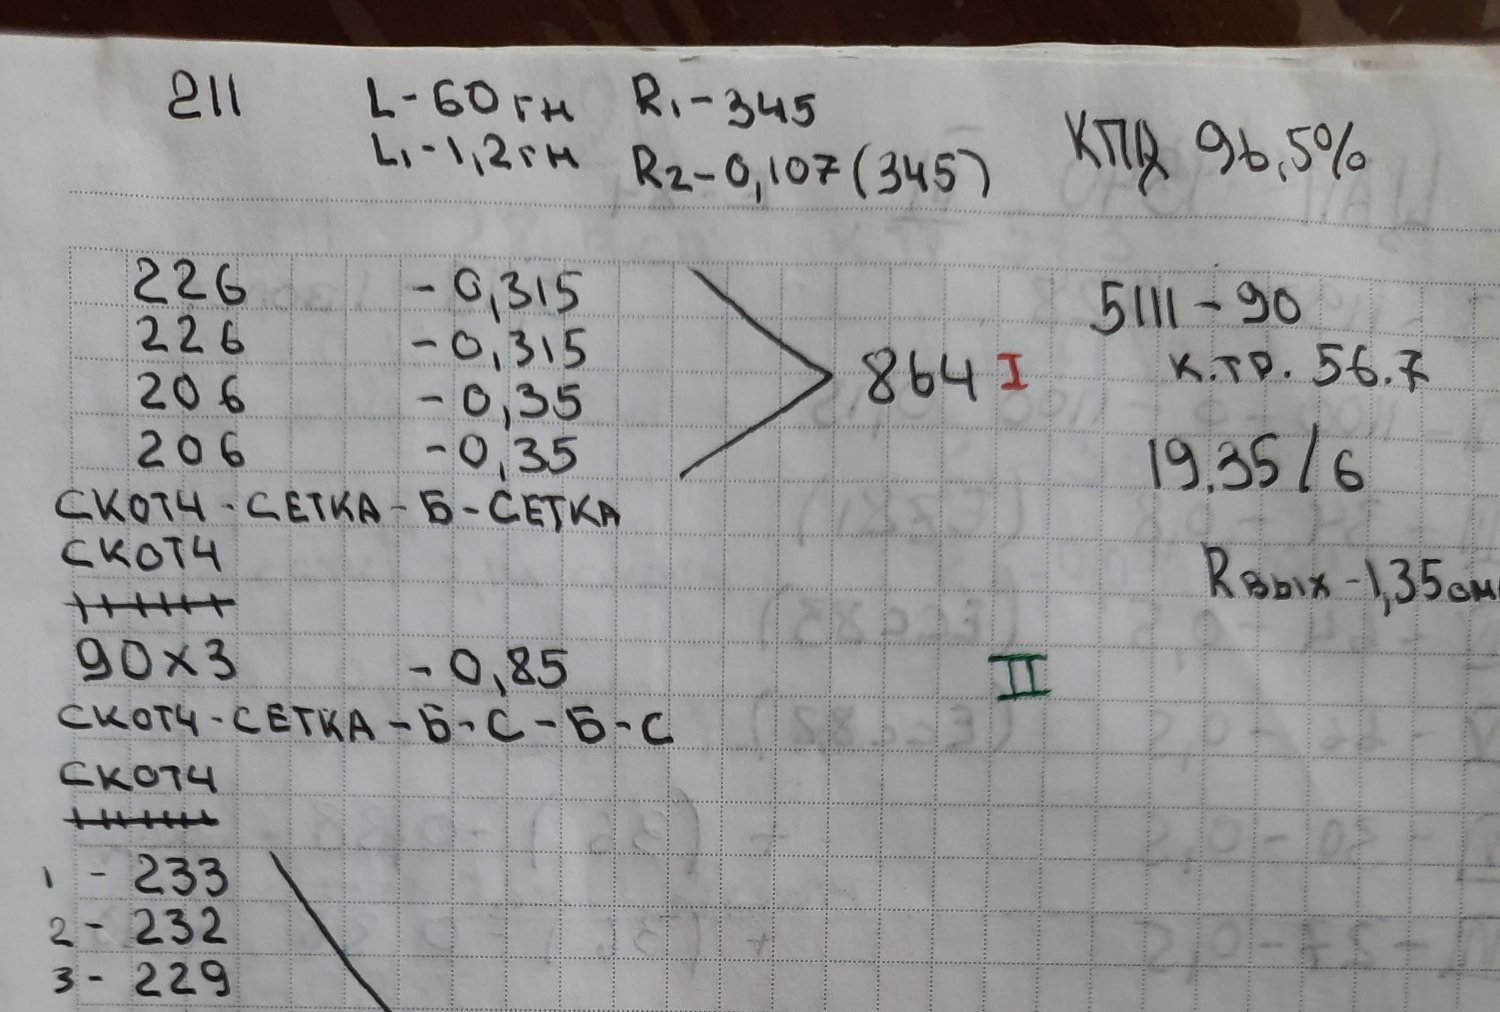 211
L-60гн R1-345
L1-1,2гн R2-0,107(345)
КПД 96,5%
226 -0,315
226 -0,315
206 -0,35
206 -0,35
864 I
5111-90
К.ТР. 56.7
19,35/6
Rвых-1,35ом
СКОТЧ-СЕТКА-Б-СЕТКА
СКОТЧ
90х3 -0,85
II
СКОТЧ-СЕТКА-Б-С-Б-С
СКОТЧ
1 - 233
2 - 232
3 - 229